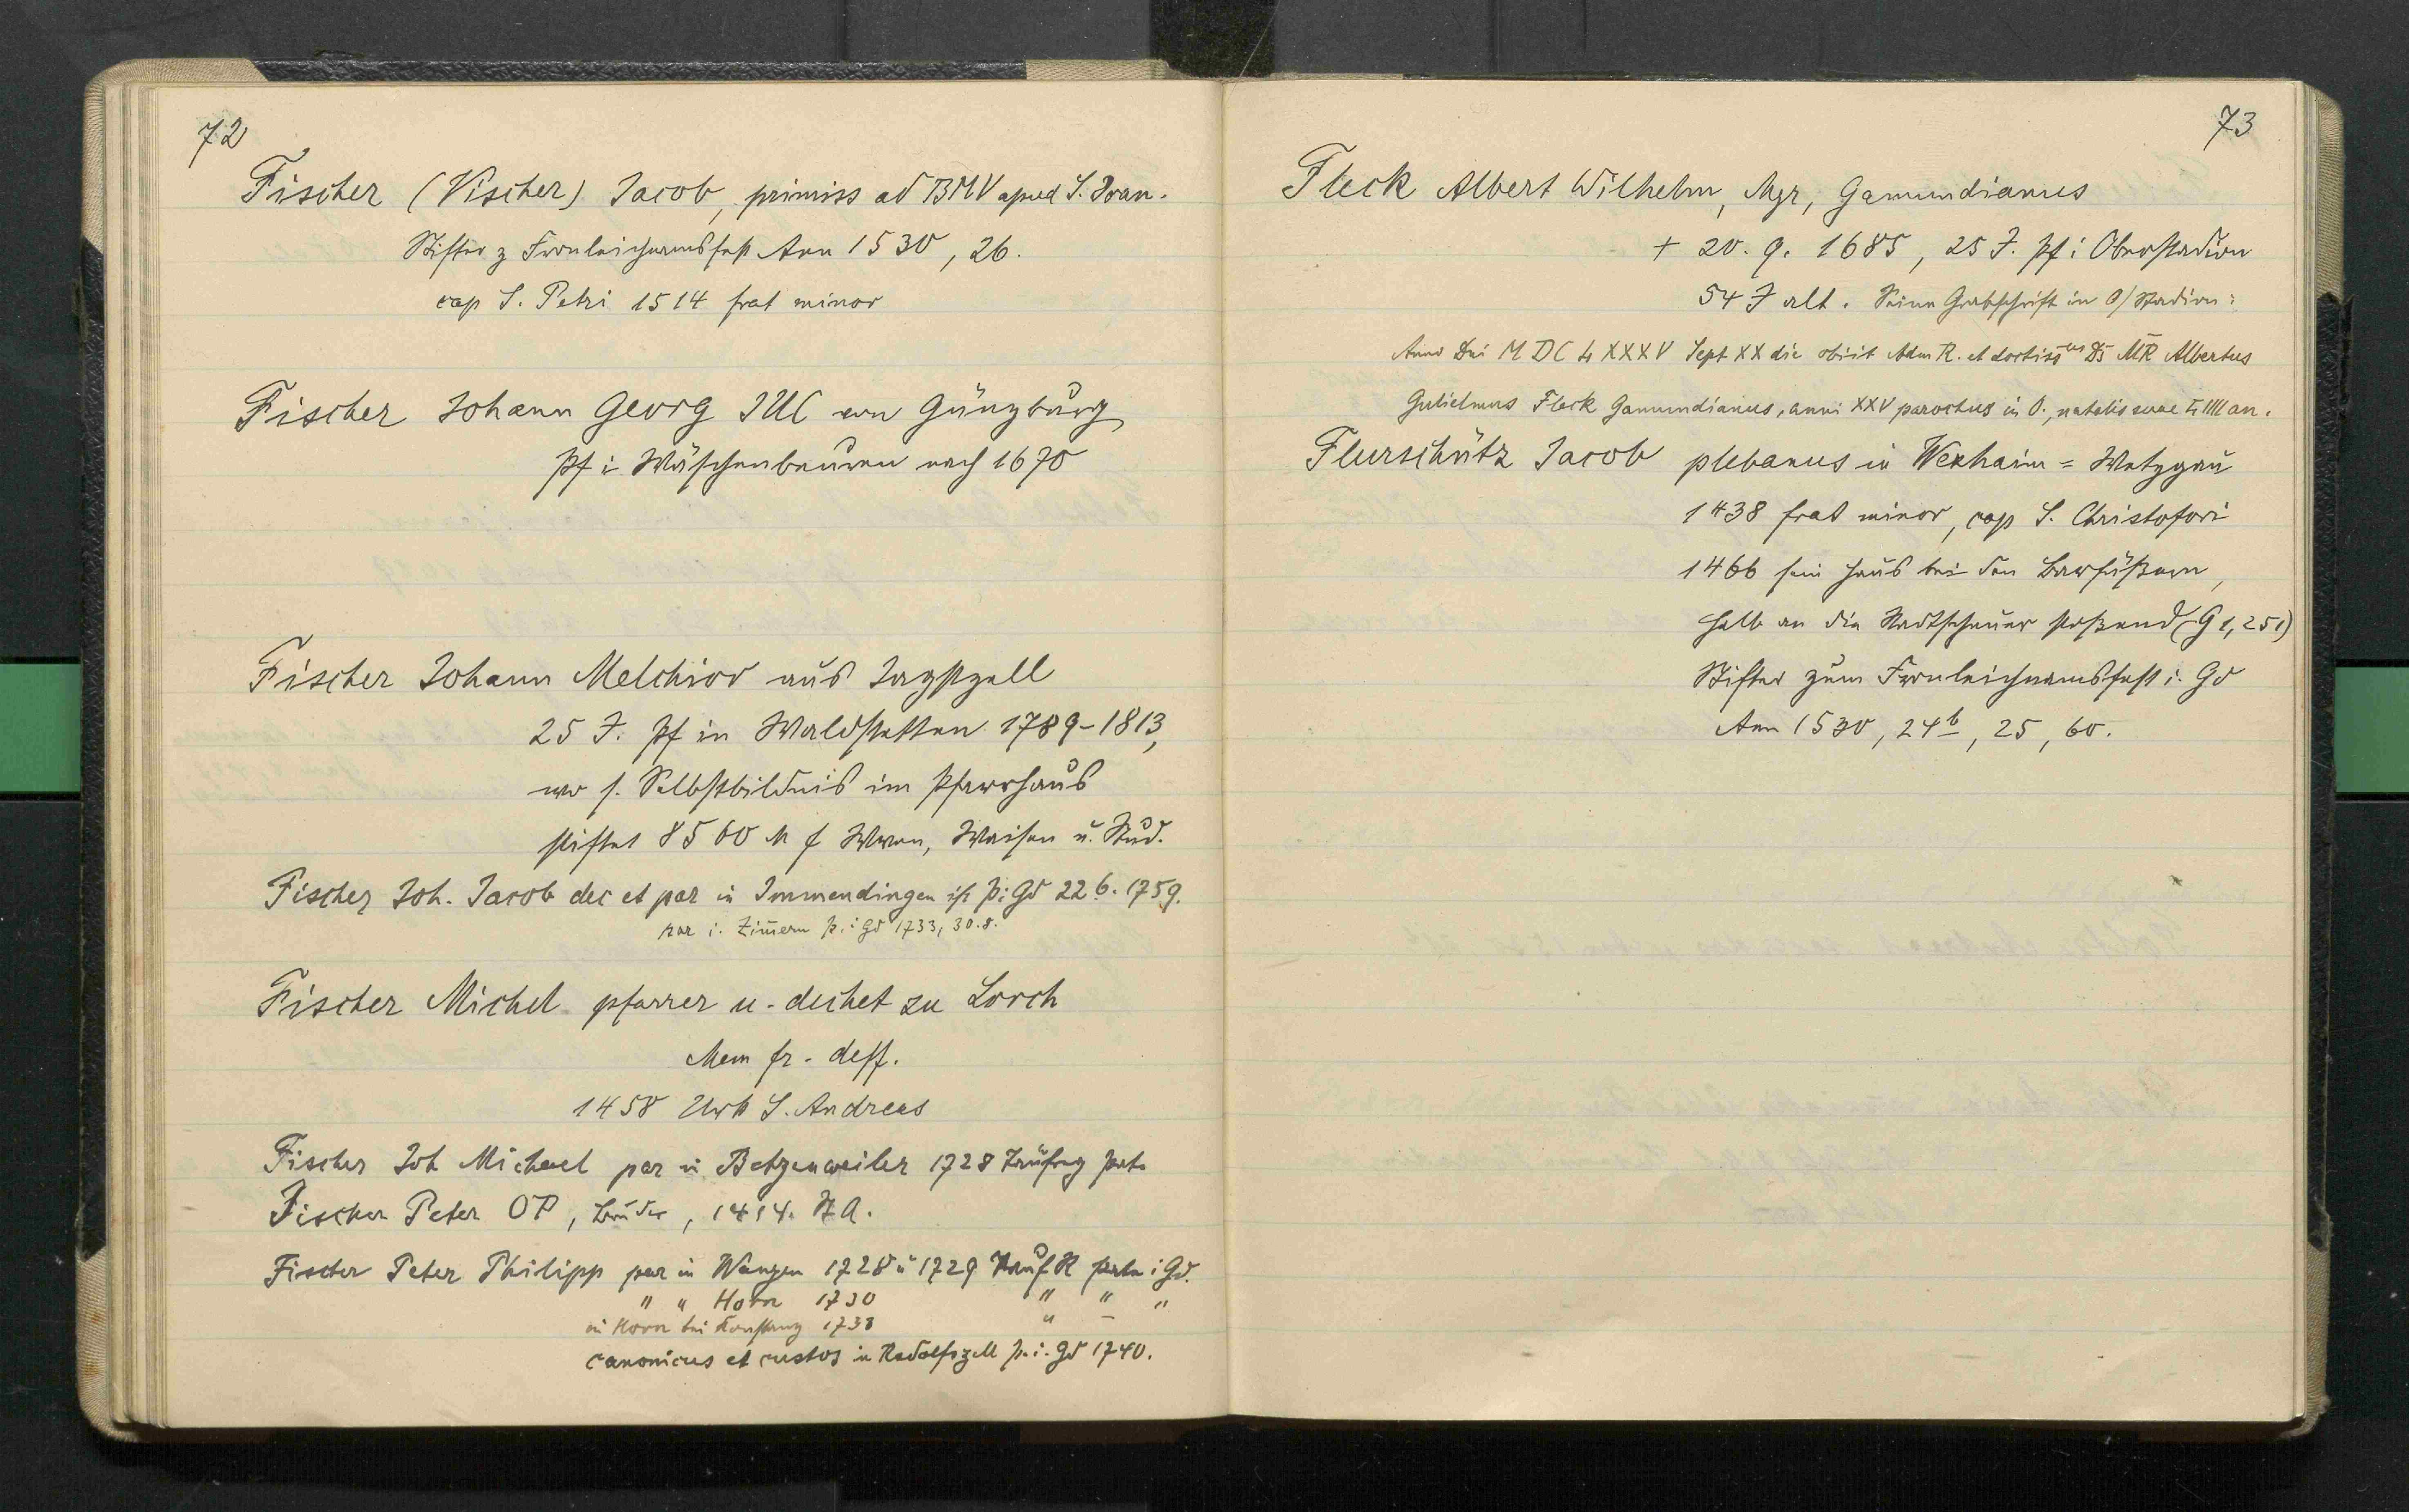 72
Fischer (Vischer) Jacob, primiss ad BMV apud S. Joan.
Stifter z Fronleichnamsfest Ann 1530, 26.
cap S. Petri 1514 frat minor
Fischer Johann Georg JUC von Günzburg
Pf i Wäschenbeuren nach 1670
Fischer Johann Melchior aus Jagstzell
25 J. Pf in Waldstetten 1789-1813,
wo s. Selbstbildnis im Pfarrhaus
stiftet 8560 M f Wwen, Waisen u. Stud.
Fischer Joh. Jacob dec et par in Immendingen ist p. i Gd 22.6.1759.
par i. Zim̄ern p. i Gd 1733, 30.8.
Fischer Michel pfarrer u. dechet zu Lorch
Mem fr. deff.
1458 Urk S. Andreas
Fischer Joh Michael par in Betzenweiler 1728 Taufzg
Fischer Peter OP, Bruder, 1414. StA.
Fischer Peter Philipp par in Wangen 1728 u 1729 Tauf R i Gd.
" " Horn 1730 " " "
in Horn bei Konstanz 1738 " –
canonicus et custos in Radolfszell p. i. Gd 1740.
73
Fleck Albert Wilhelm, Mgr, Gamundianus
+ 20. 9. 1685, 25 J. Pf i Oberstadion
54 J alt. Seine Grabschrift in O/Stadion:
Anno Dni MDCLXXXV Sept XX die obiit Adm R. et doctiss us Ds MR Albertus
Gulielmus Fleck Gamundianus, anni XXV parochus in O., natalis suae LIIII an.
Flurschütz Jacob plebanus in Wexhaim = Wetzgau
1438 frat minor, cap S. Christofori
1466 sein Haus bei den Barfüßern,
halb an die Stadtscheuer stoßend (G 1, 251)
Stifter zum Fronleichnamsfest i. Gd
Ann 1530, 24b, 25, 60.